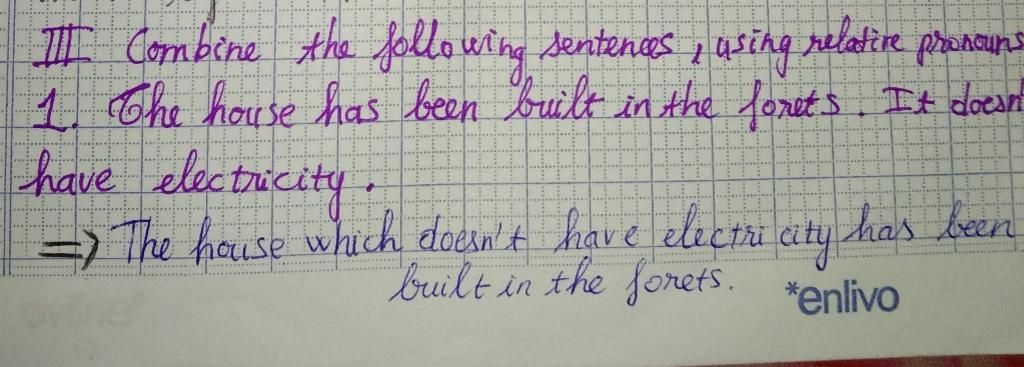 III Combine the following sentences, using relative pronouns
1. The house has been built in the forets. It doesn'
have electricity.
=> The house which doesn't have electricity has been
built in the forets.
*enlivo